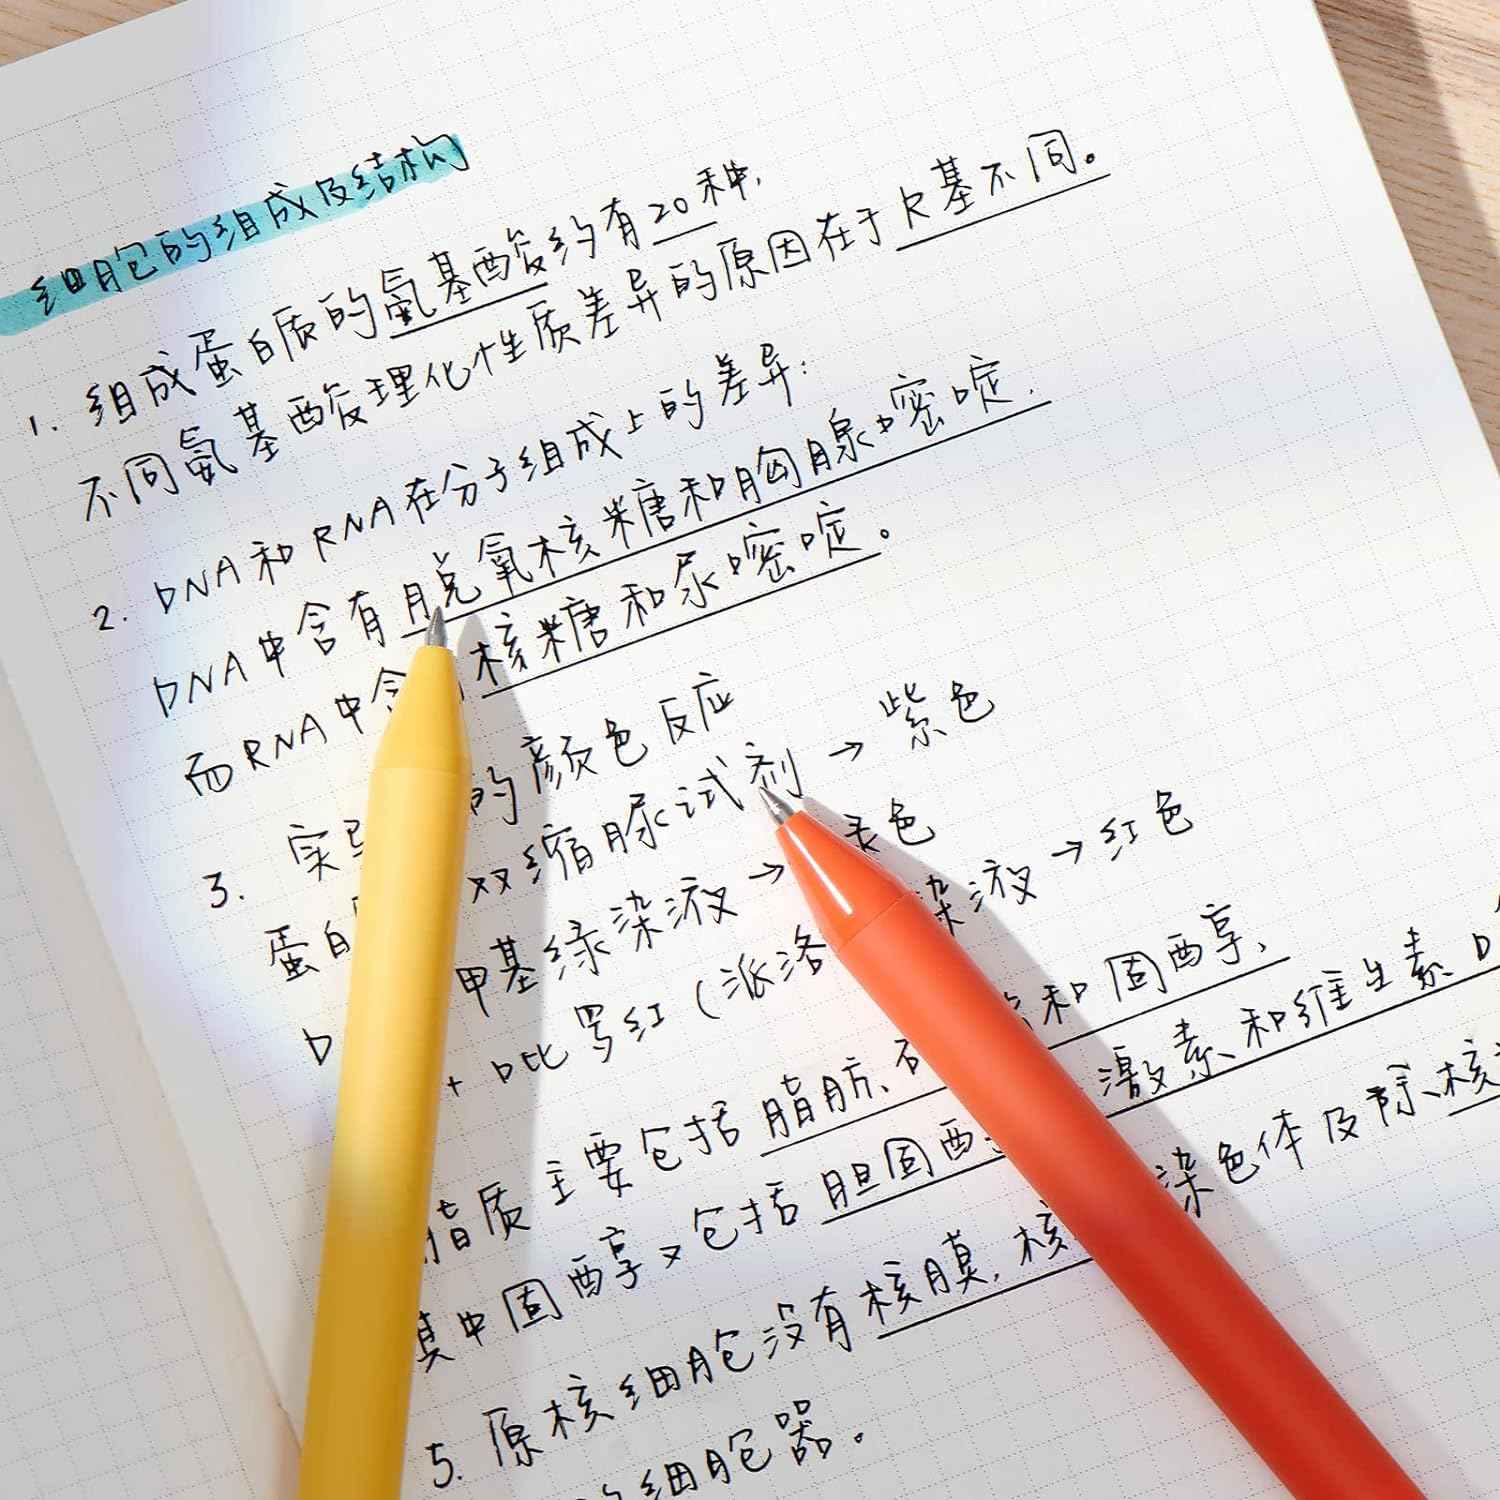 细胞的组成及结构
1. 组成蛋白质的氨基酸约有20种,
不同氨基酸理化性质差异的原因在于R基不同。
2. DNA和RNA在分子组成上的差异:
DNA中含有脱氧核糖和胸腺嘧啶.
而RNA中含 核糖和尿嘧啶。
3. 实 的颜色反应
蛋白 双缩脲试剂→紫色
D 甲基绿染液→ 色
+ 吡罗红(派洛 染液→红色
脂质主要包括脂肪、 和固醇、
其中固醇又包括胆固醇 激素和维生素D
5. 原核细胞没有核膜, 核 染色体及除核
细胞器。